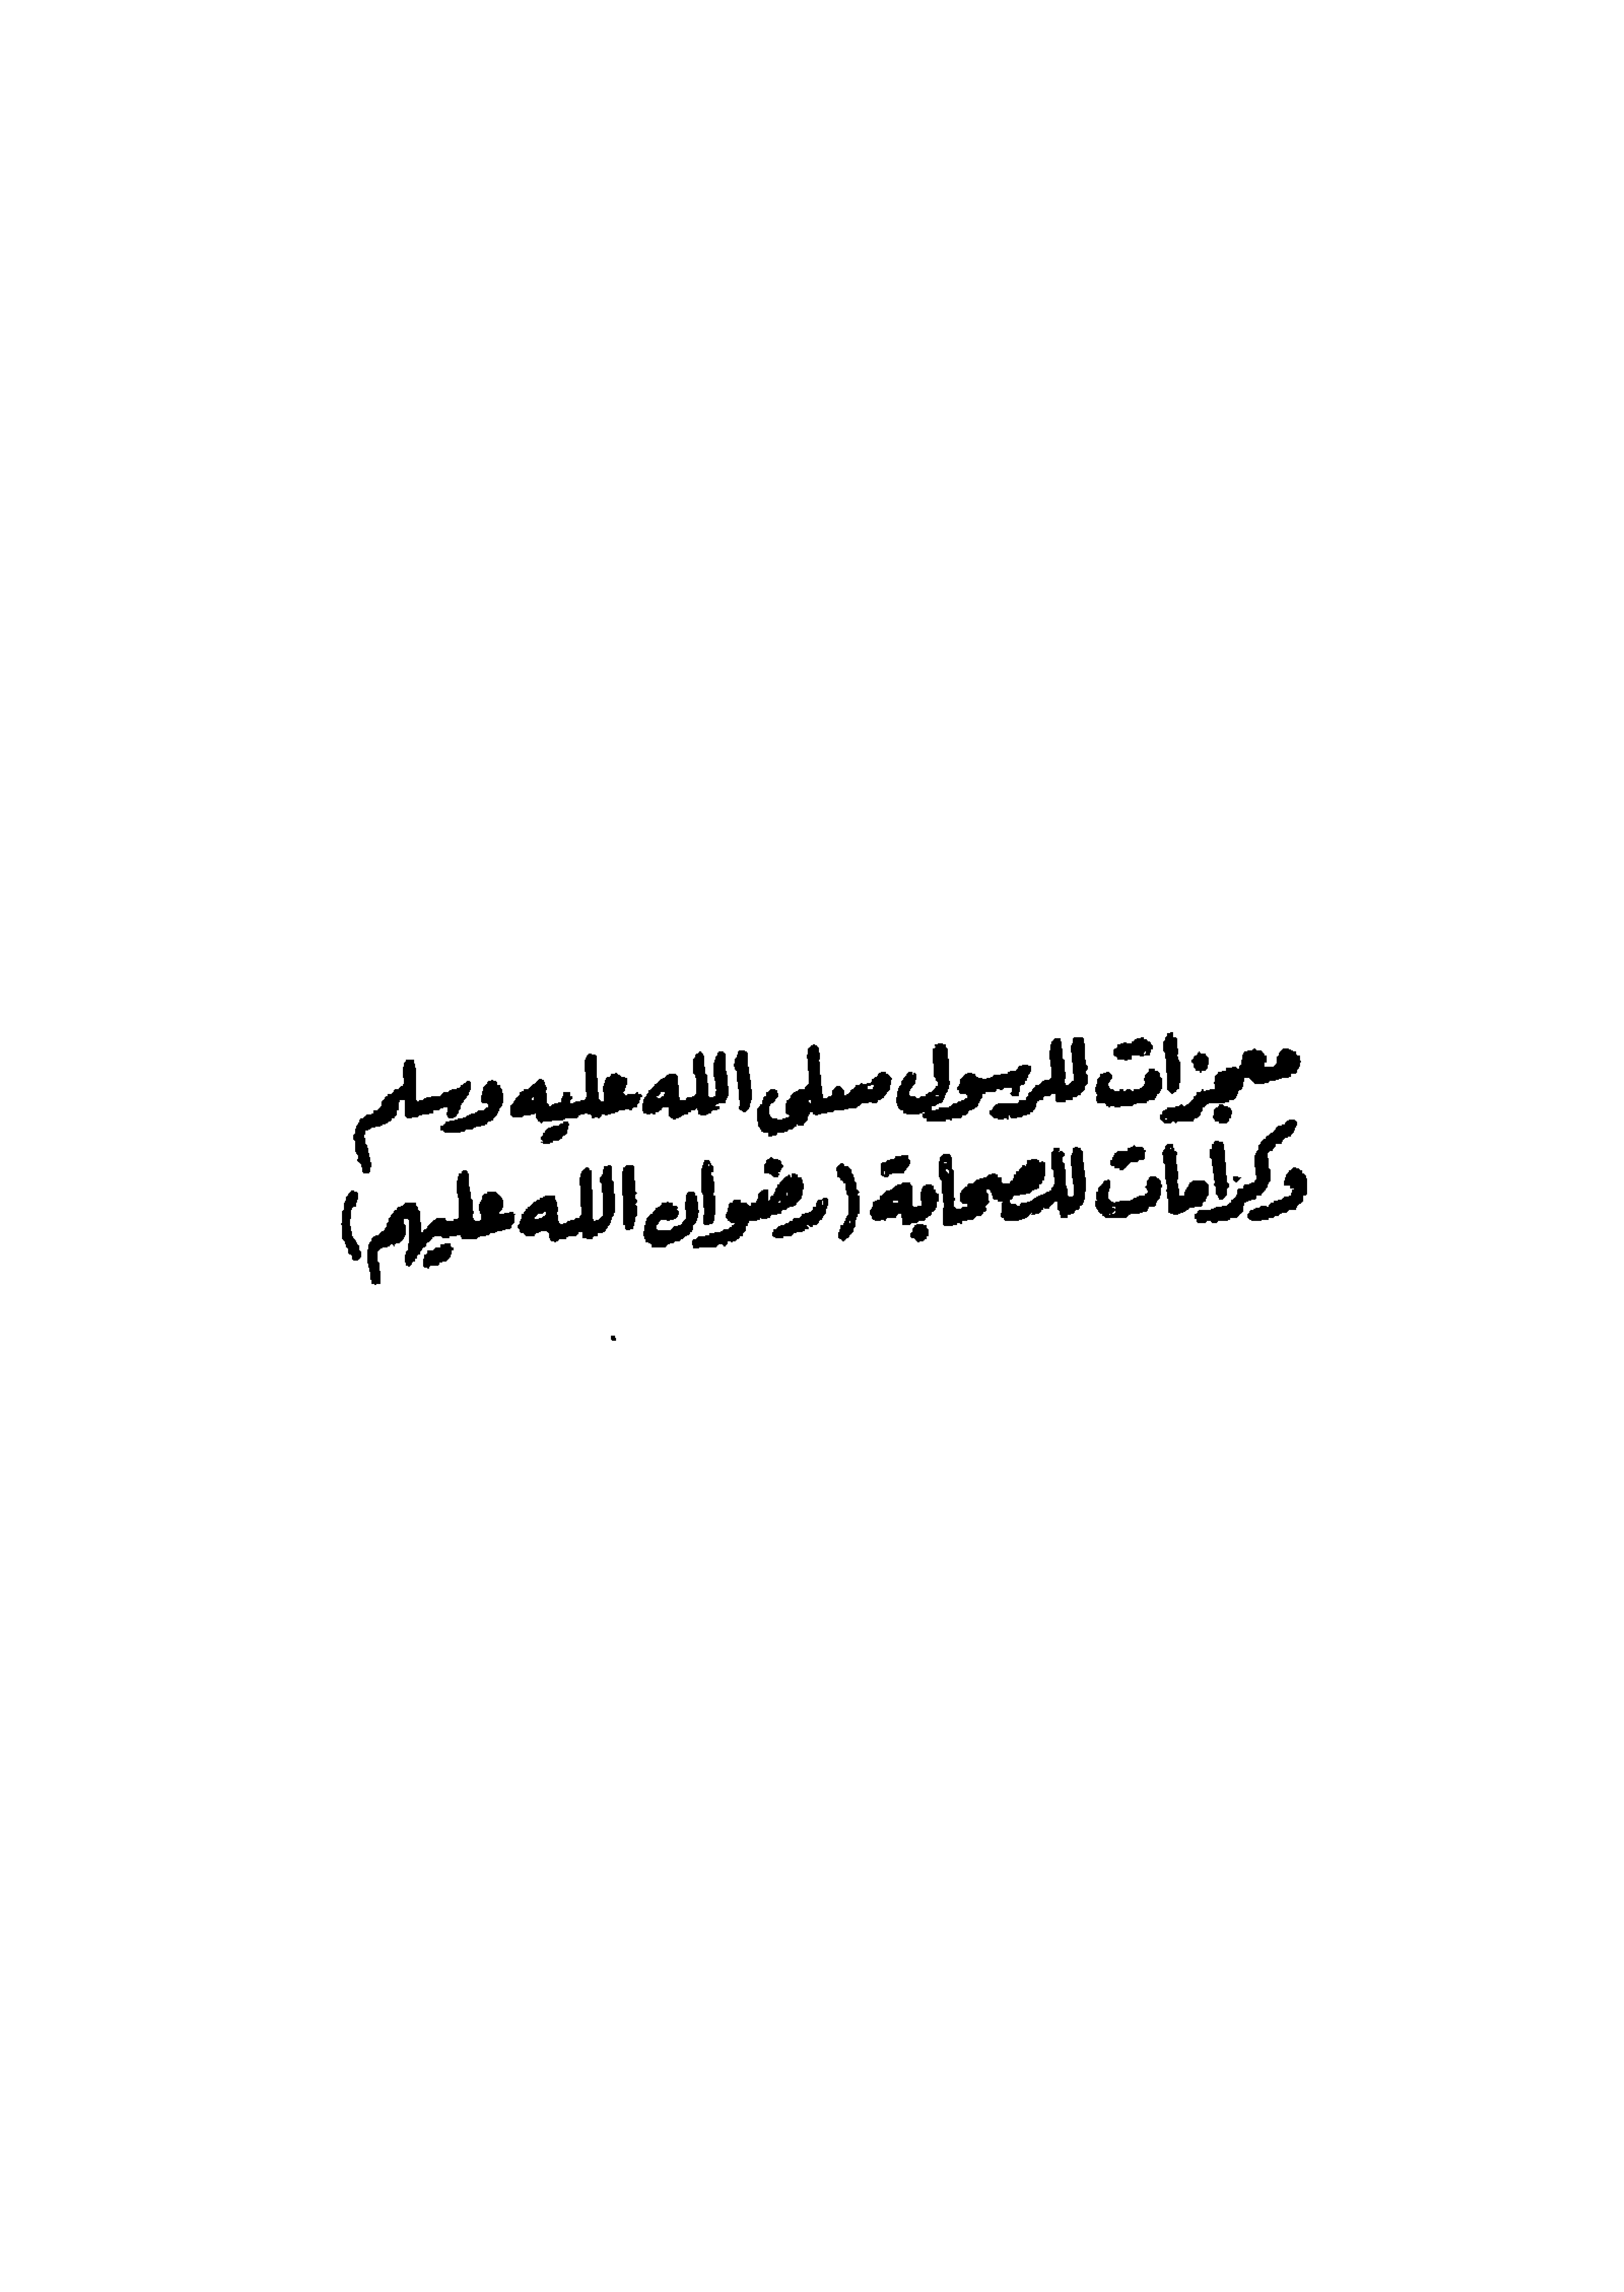 معجزات للرسول صلى الله عليه وسلم
وكرامات للصحابة (رضوان الله عليهم)